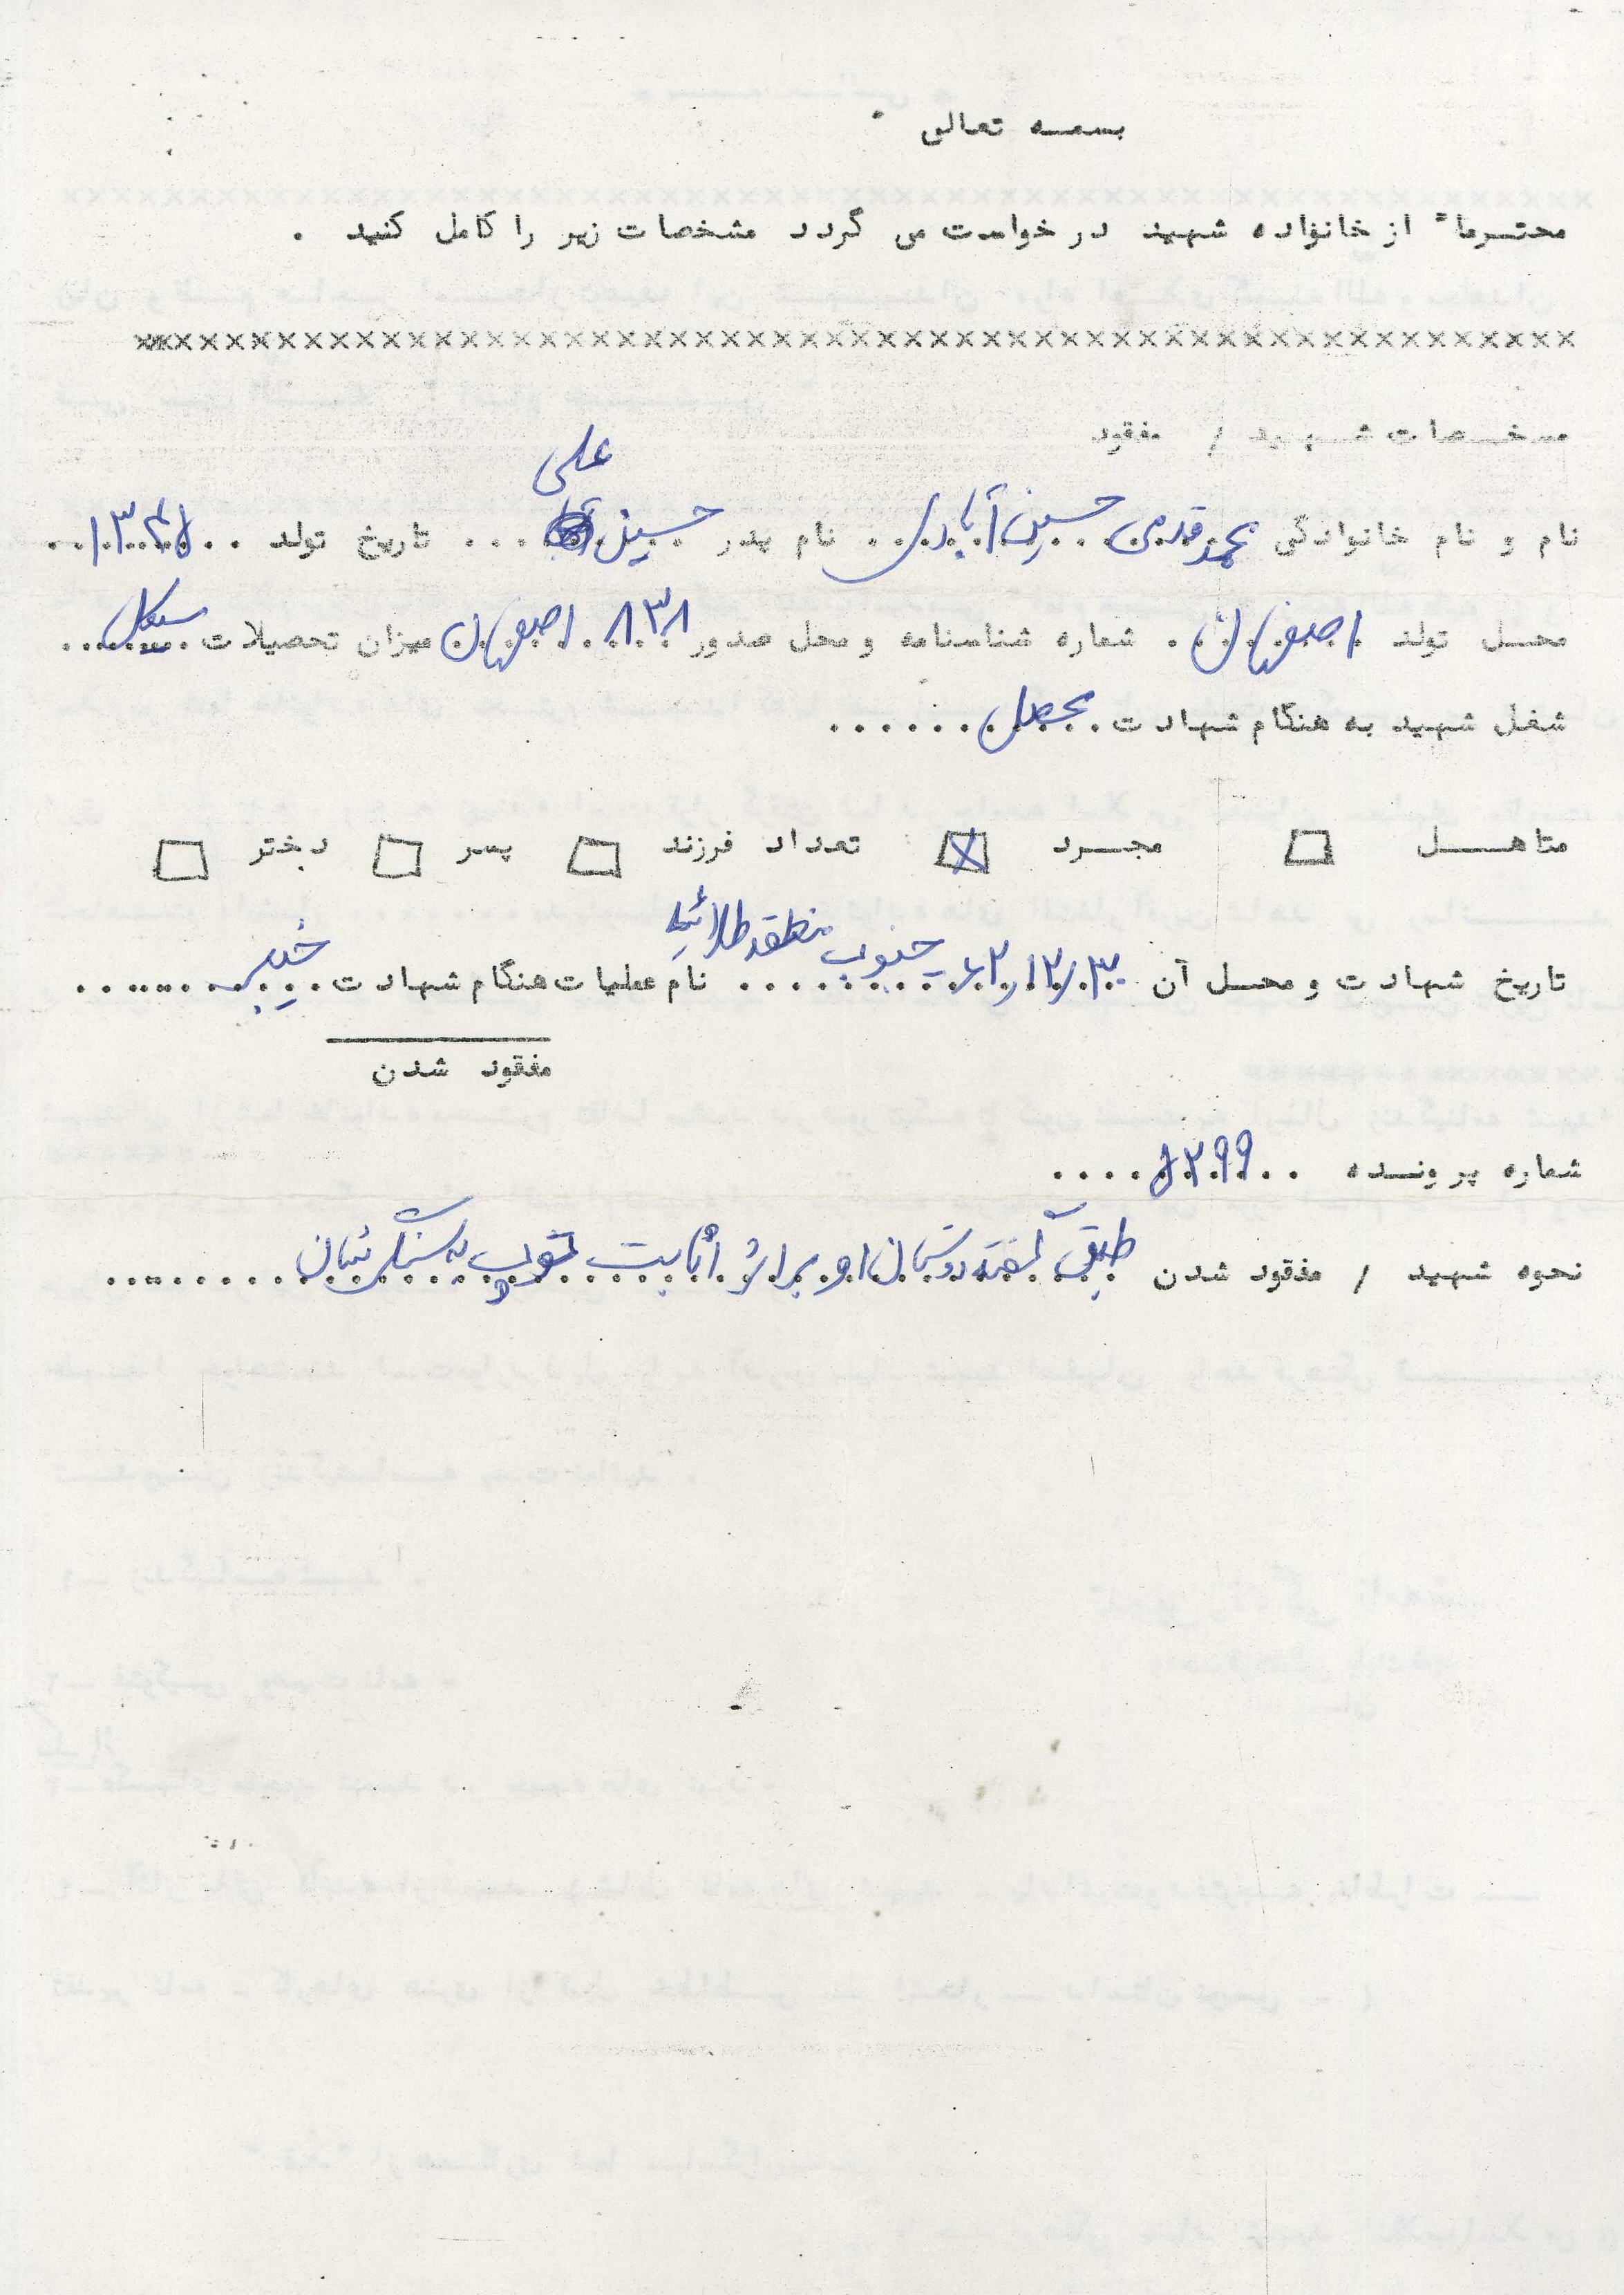 بسمه تعالی
محترما" از خانواده شهید درخواست می گردد مشخصات زیر را کامل کنید .
×××××××××××××××××××××××××××××××××××××××××××××××××××××××××
مشخصات شهید / مفقود
علی
نام و نام خانوادگی محمد قدمی حسین آبادی نام پدر حسین تاریخ تولد
محل تولد اصفهان شماره شناسنامه و محل صدور ۸۳۸ اصفهان میزان تحصیلات سیکل
شغل شهید به هنگام شهادت محصل
متاهل □ مجرد ☒ تعداد فرزند □ پسر □ دختر □
تاریخ شهادت و محل آن ۶۲/۱۲/۳ جنوب منطقه طلائیه نام عملیات هنگام شهادت خیبر
مفقود شدن
شماره پرونده
نحوه شهید / مفقود شدن طبق گفته دوستان او بر اثر اثابت توپ به سنگرشان